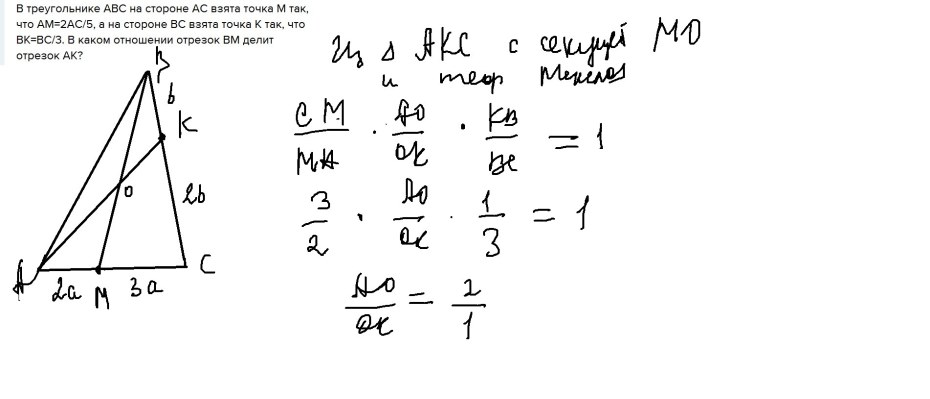 В треугольнике ABC на стороне AC взята точка M так,
что AM=2AC/5, а на стороне BC взята точка K так, что
BK=BC/3. В каком отношении отрезок BM делит
отрезок AK?
Из Δ AKC с секущей MO
и теор Менелая
CM/MA · AO/OK · KB/BC = 1
3/2 · AO/OK · 1/3 = 1
AO/OK = 2/1
B
b
K
O
2b
A
2a
M
3a
C